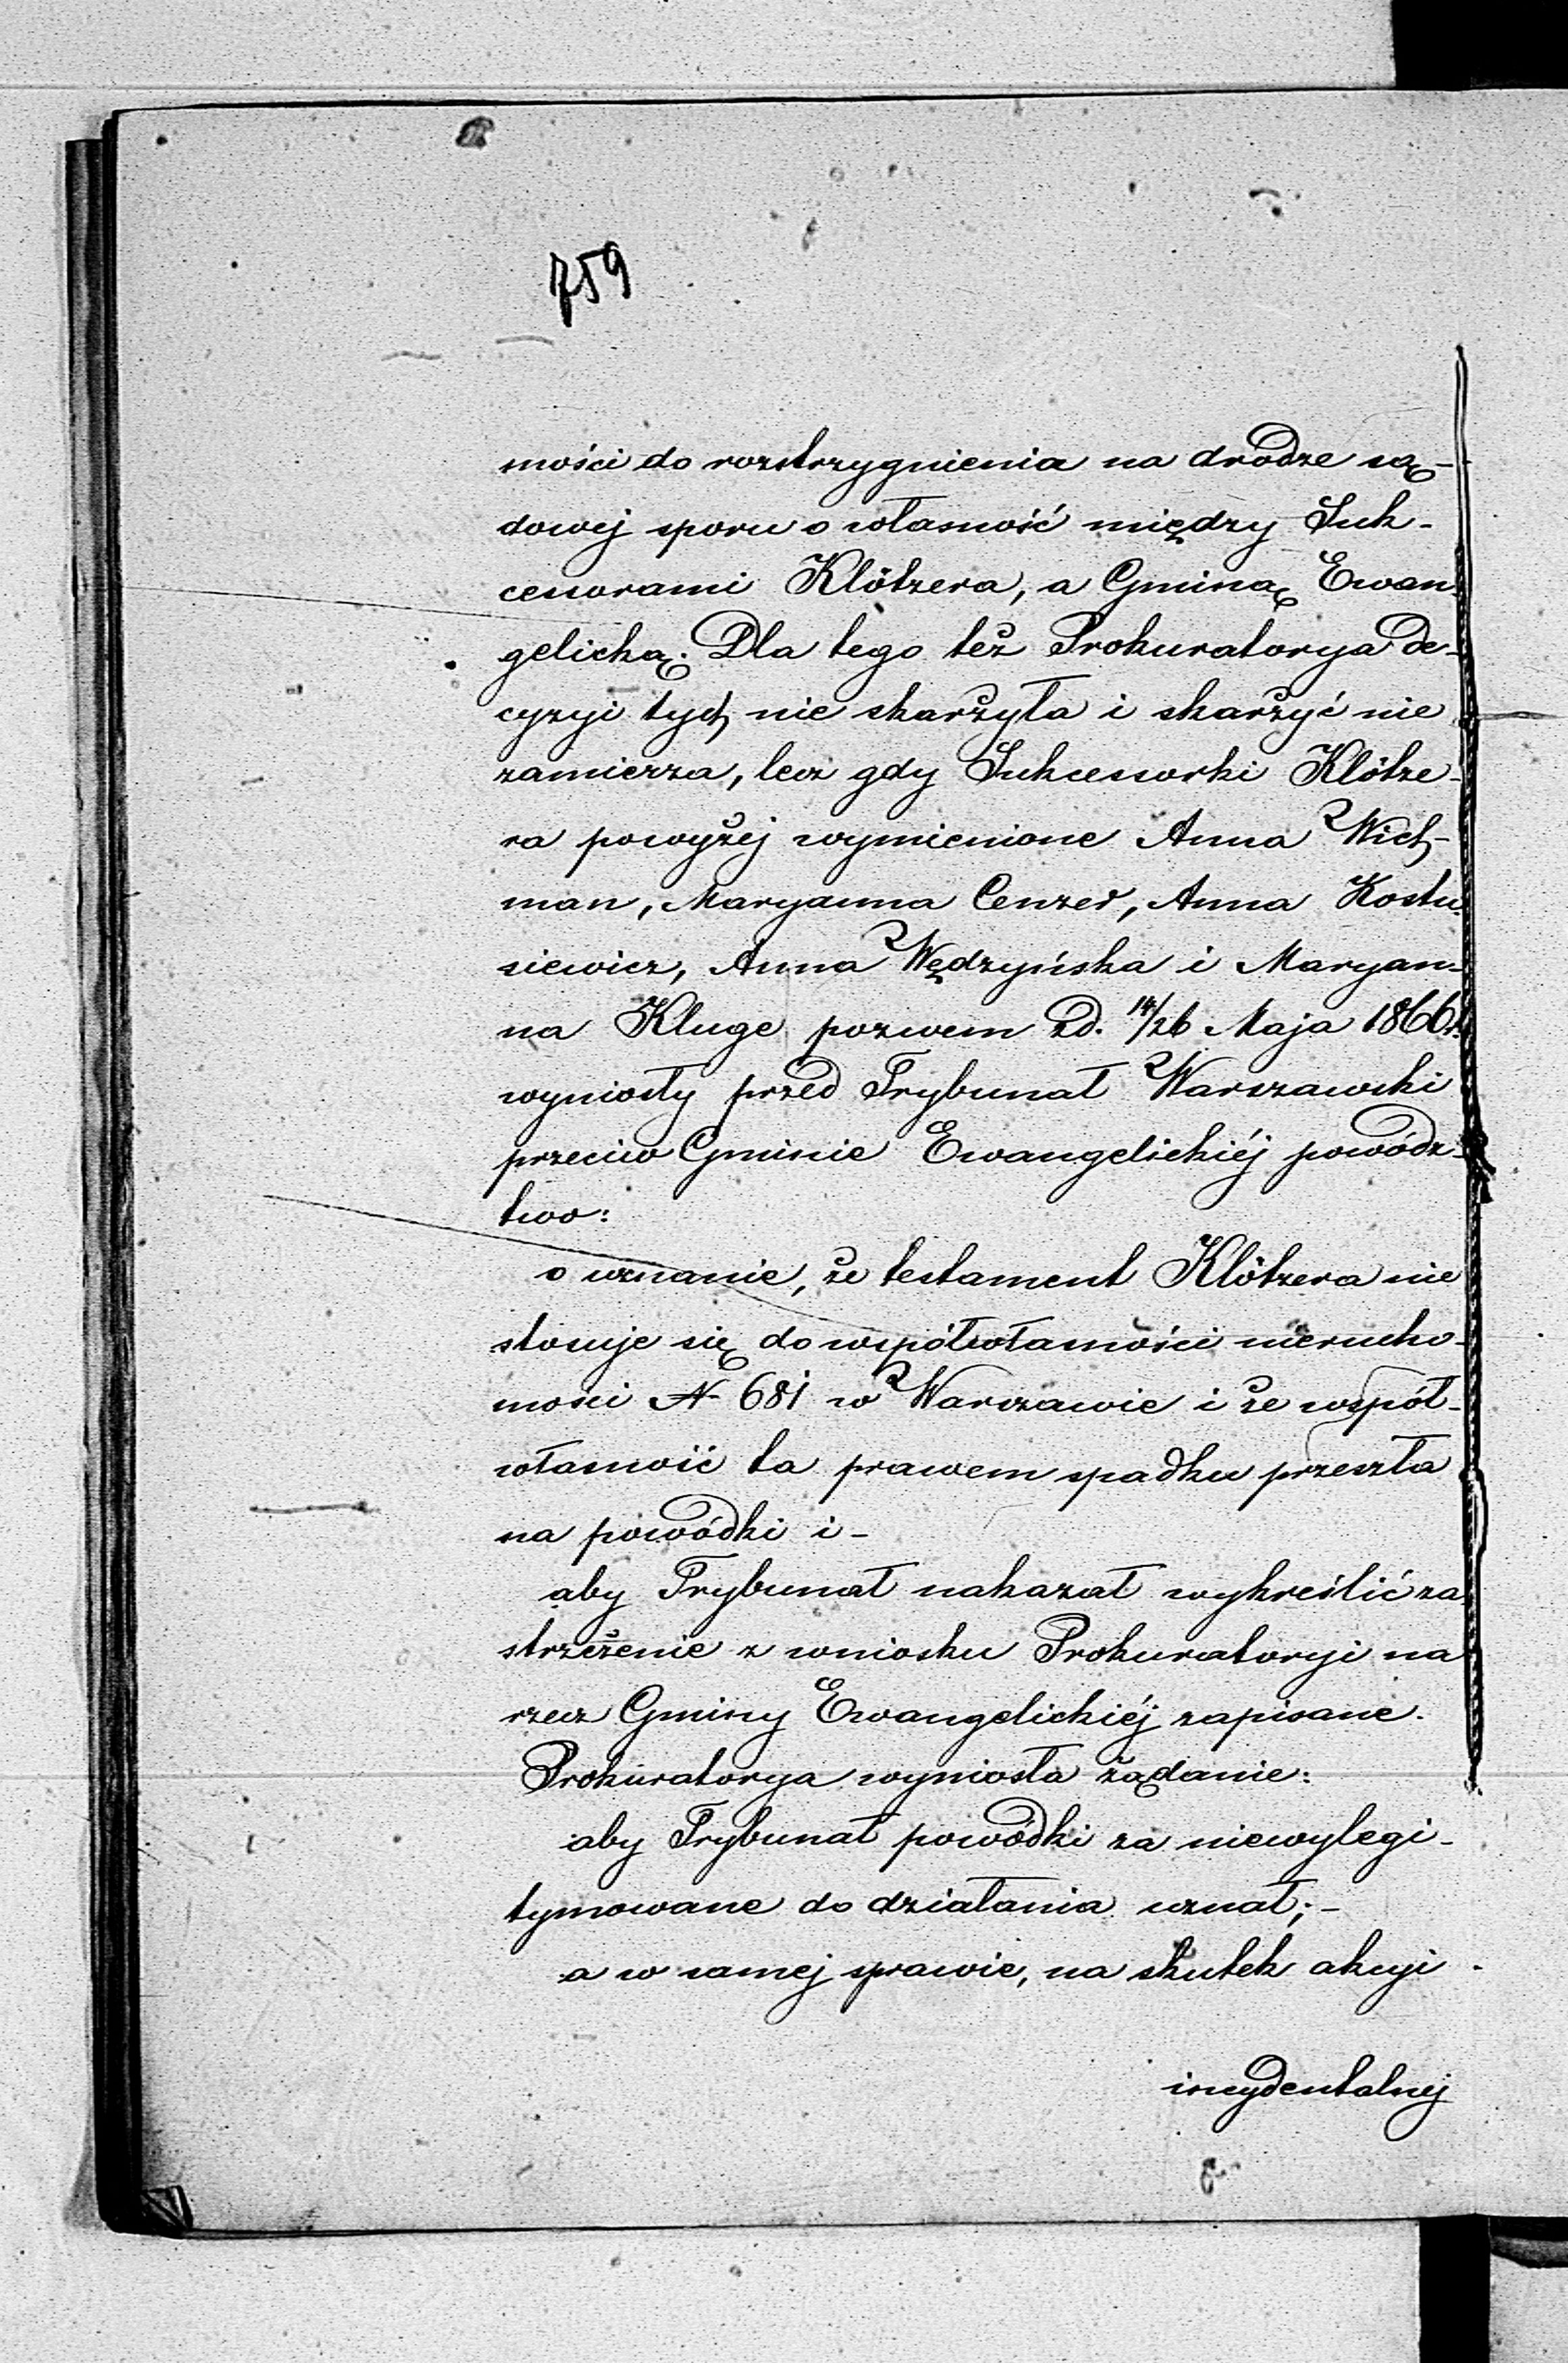 759
mości do rozstrzygnienia na drodze są-
dowej sporu o własność między Suk-
cessorami Klötzera, a Gminą Ewan-
gelicką. Dla tego też Prokuratorya de-
cyzyi tych nie skarżyła i skarżyć nie
zamierza, lecz gdy Sukcessorki Klötze-
ra powyżej wymienione Anna Wich-
man, Maryanna Cenzer, Anna Kostu-
siewicz, Anna Wędzyńska i Maryan-
na Kluge pozwem zd. 14/26 Maja 1866 r.
wyniosły przed Trybunał Warszawski
przeciw Gminie Ewangelickiéj powódz-
two:
o uznanie, że testament Klötzera nie
stosuje się do współwłasności nierucho-
mości N 681 w Warszawie i że współ-
własność ta prawem spadku przeszła
na powódki i-
aby Trybunał nakazał wykreślić za-
strzeżenie z wniosku Prokuratoryi na
rzecz Gminy Ewangelickiéj zapisane.
Prokuratorya wyniosła żądanie:
aby Trybunał powódki za niewylegi-
tymowane do działania uznał;-
a w samej sprawie, na skutek akcyi
incydentalnej